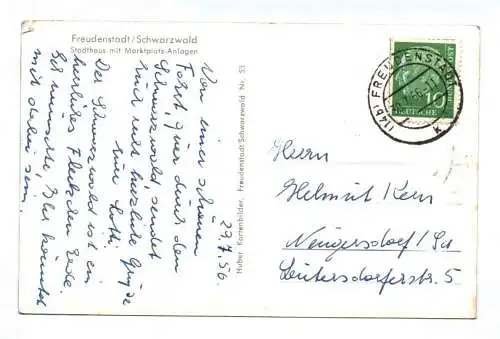 Freudenstadt/Schwarzwald
Stadthaus mit Marktplatz-Anlagen
23.7.56.
Von einer schönen
Fahrt quer durch den
Schwarzwald, sendet
Dir recht herzliche Grüße
Eure Lotti.
Der Schwarzwald ist ein
herrliches Fleckchen Erde.
Ich wünschte, Ihr könntet
mit dabei sein.
Huber Kartenbilder, Freudenstadt-Schwarzwald Nr. 53
(14b) FREUDENSTADT
k
10
DEUTSCHE
Herrn
Helmut Kern
Neugersdorf/Sa
Leutersdorferstr. 5